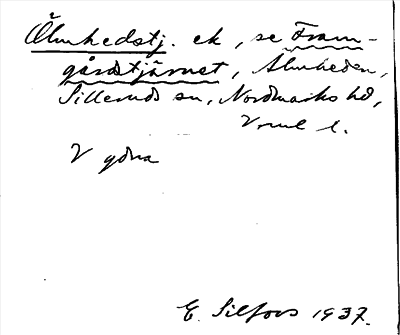 Älmhedstj. ek, se Fram-
gårdstjärnet, Älmheden,
Sillerud sn, Nordmarks hd,
Vrml l.
V ydra
E. Silfors 1937.